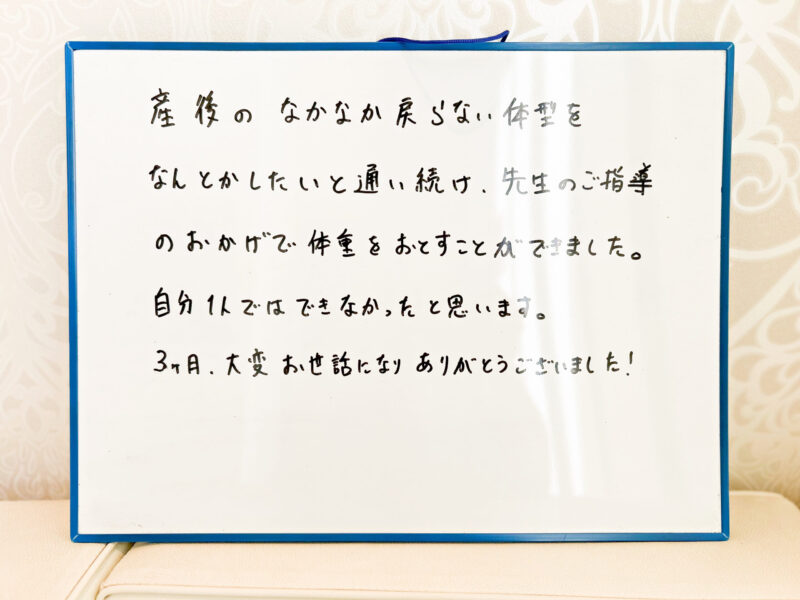 産後の なかなか戻らない体型を
なんとかしたいと通い続け、先生のご指導
のおかげで体重をおとすことができました。
自分1人ではできなかったと思います。
3ヶ月、大変お世話になり ありがとうございました!